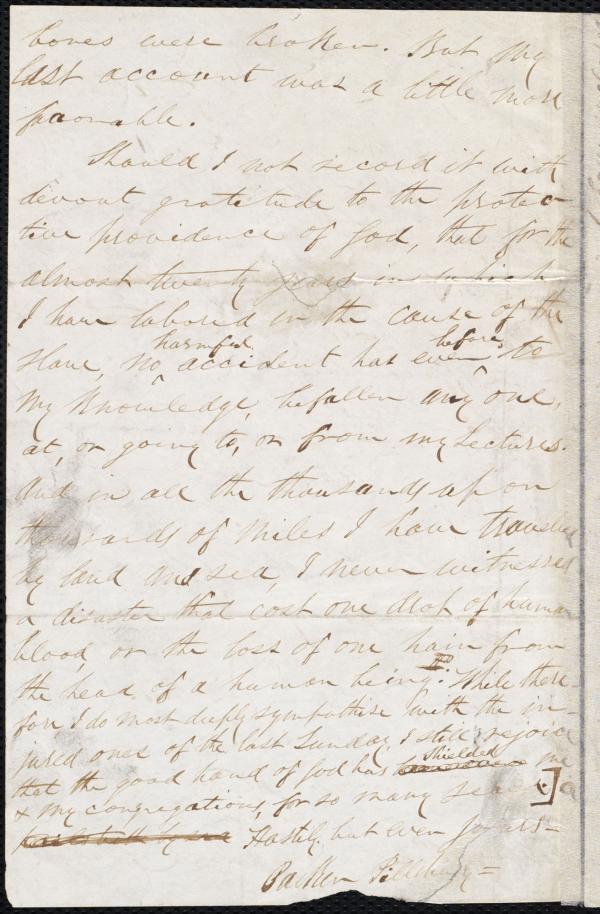 bones were broken. But my
last account was a little more
favorable.
Should I not record it with
devout gratitude to the protec-
tive providence of God, that for the
almost twenty years in which
I have labored in the cause of the
harmful before
slave, no ^ accident has ever ^ to
my knowledge, befallen any one,
at, or going to, or from my Lectures.
And in all the thousands upon
thousands of miles I have traveled
by land and sea, I never witnessed
a disaster that cost one drop of human
blood, or the loss of one hair from
the head of a human being. While there-
fore I do most deeply sympathise with the in-
jured ones of the last Sunday, I still rejoice
shielded
that the good hand of God has me
& my congregations, for so many years.]
Hastily but ever yours =
Parker Pillsbury =